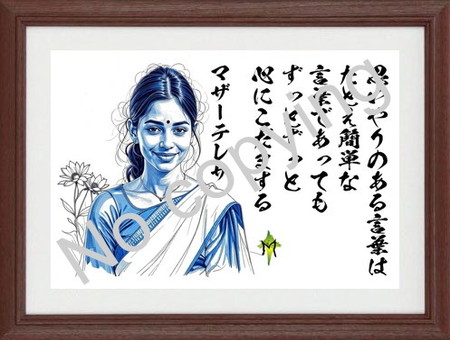 思いやりのある言葉は
たとえ簡単な
言葉であっても
ずっとずっと
心にこだまする
マザーテレサ
M
No copying